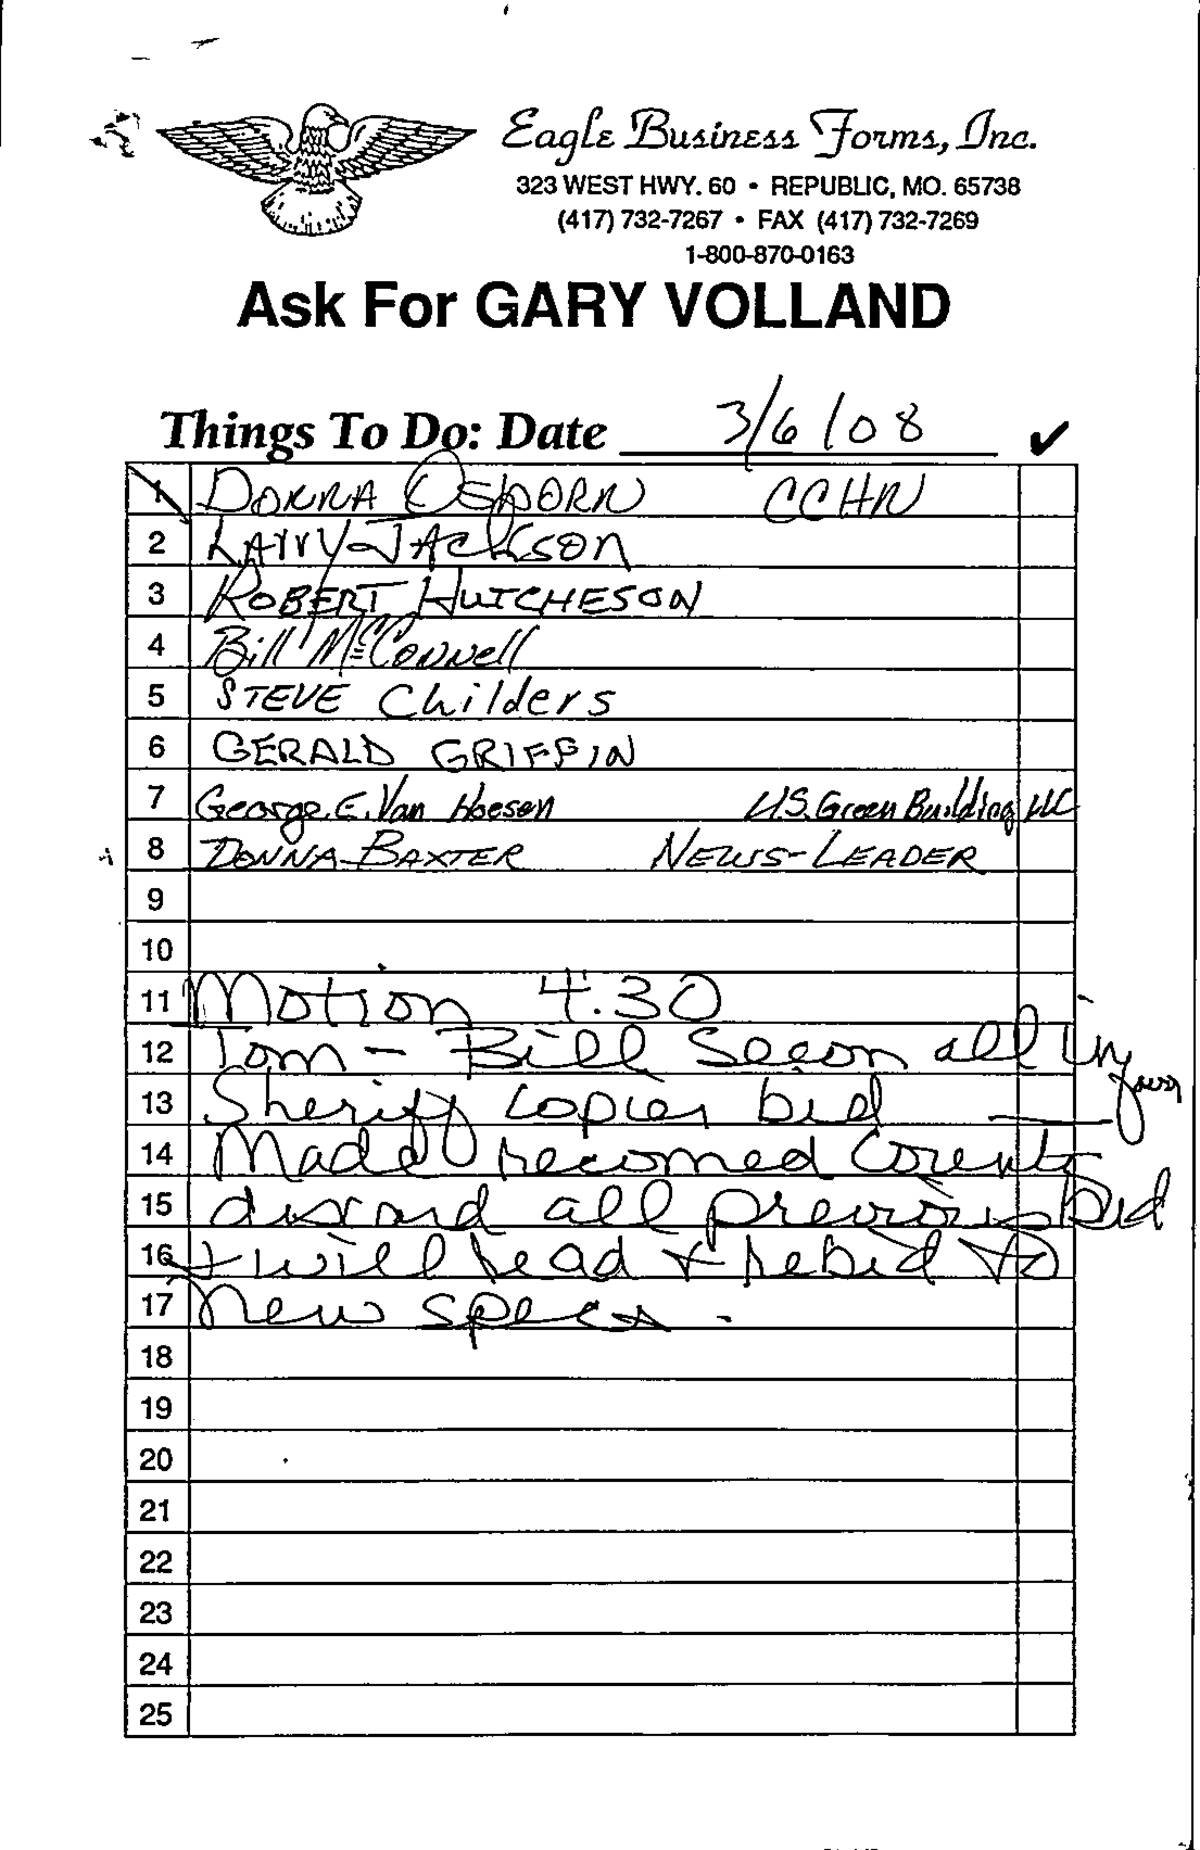 Eagle Business Forms, Inc.
323 WEST HWY. 60 • REPUBLIC, MO. 65738
(417) 732-7267 • FAX (417) 732-7269
1-800-870-0163
Ask For GARY VOLLAND
Things To Do: Date 3/6/08 ✔
1 DONNA OSBORN CCHN
2 LARRY JACKSON
3 ROBERT HUTCHESON
4 Bill McConnell
5 STEVE Childers
6 GERALD GRIFFIN
7 George E. Van Hoesen U.S. Green Building LLC
8 DONNA BAXTER NEWS-LEADER
9
10
11 Motion 4:30
12 Tom - Bill Secon all in favor
13 Sheriff copier bid
14 Madd recomed
15 discard all previous bid
16 + will head + rebid to
17 new specs -
18
19
20
21
22
23
24
25